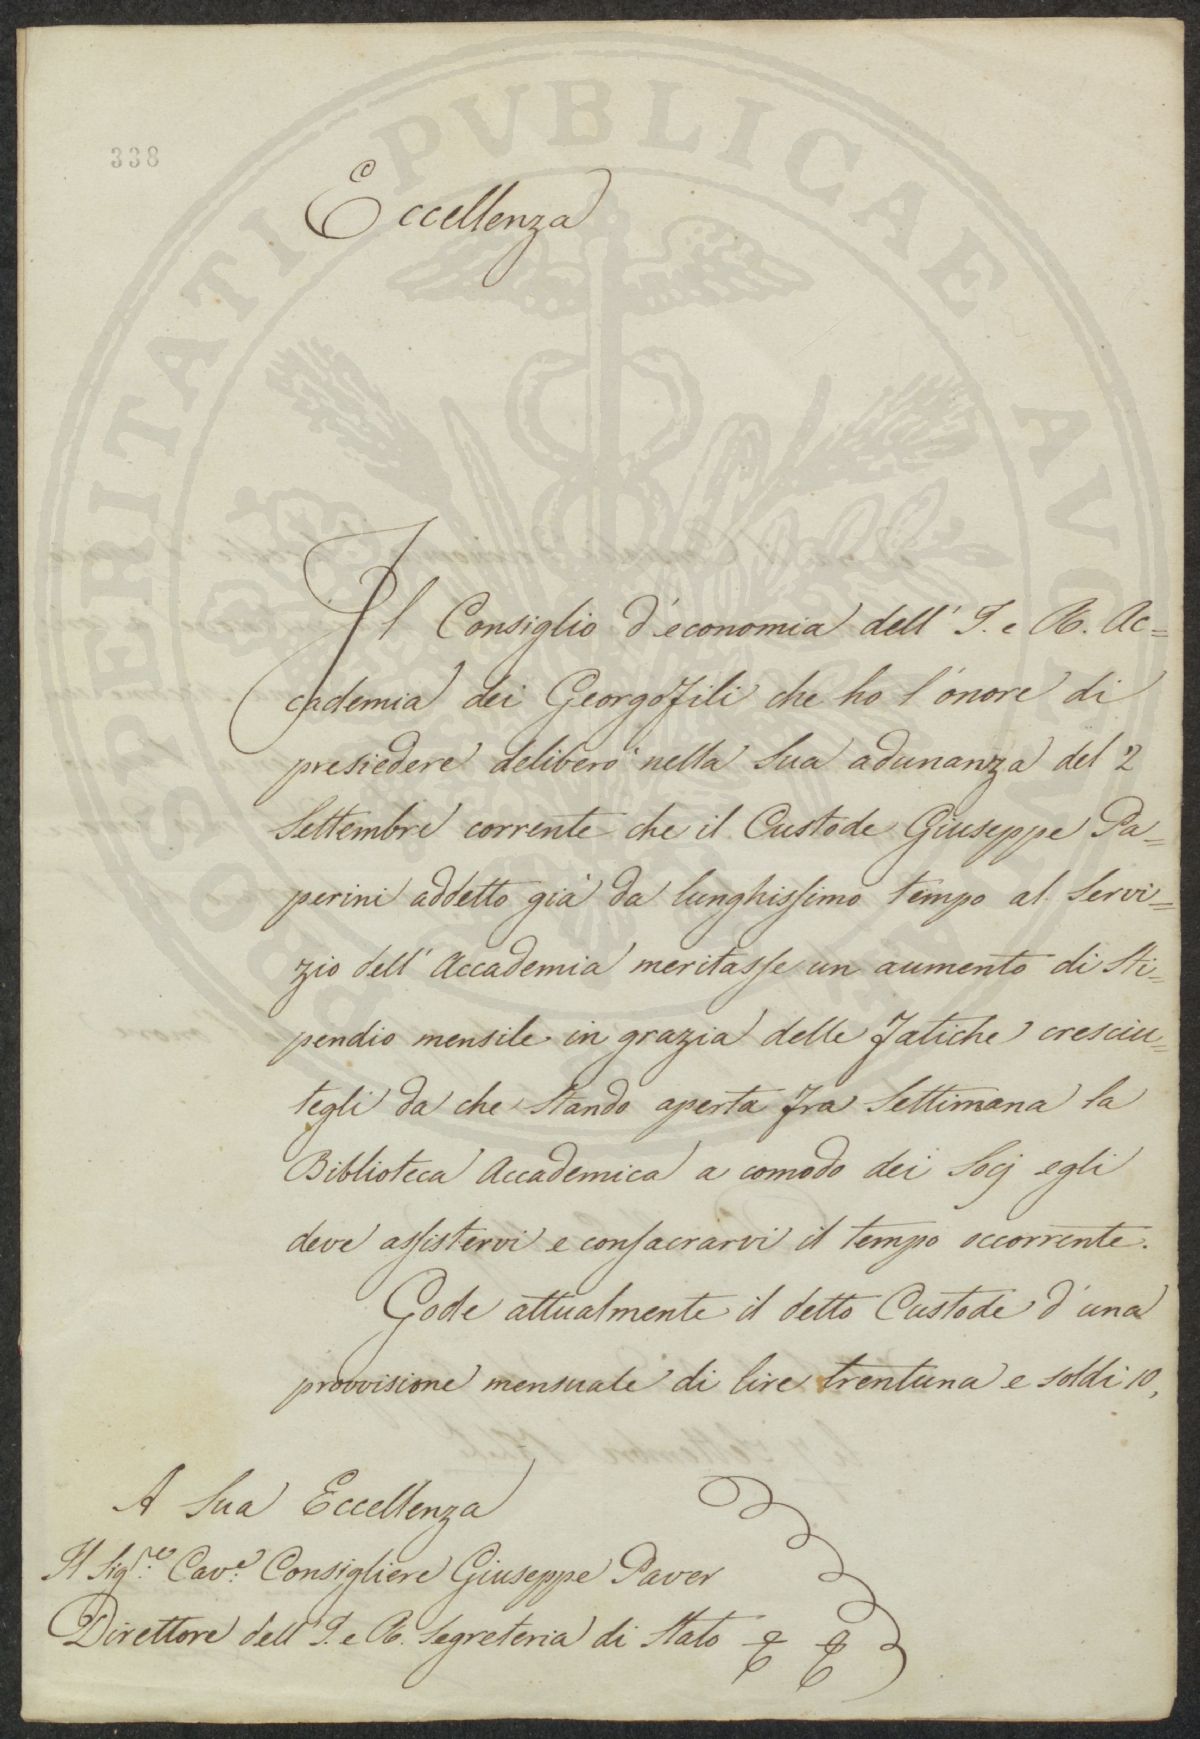 PROSPERITATI PVBLICAE AVGENDAE
338
Eccellenza
Il Consiglio d'economia dell' I. e R. Ac=
cademia dei Georgofili che ho l'onore di
presiedere deliberò nella Sua adunanza del 2
Settembre corrente che il Custode Giuseppe Pa=
perini addetto già da lunghissimo tempo al Servi=
zio dell' Accademia meritasse un aumento di Sti=
pendio mensile in grazia delle fatiche cresciu=
tegli da che stando aperta fra Settimana la
Biblioteca Accademica a comodo dei Socj egli
deve assistervi e consacrarvi il tempo occorrente.
Gode attualmente il detto Custode d'una
provvisione mensuale di lire trentuna e soldi 10,
A Sua Eccellenza
Il Sig.re Cav.e Consigliere Giuseppe Paver
Direttore dell' I. e R. Segreteria di Stato